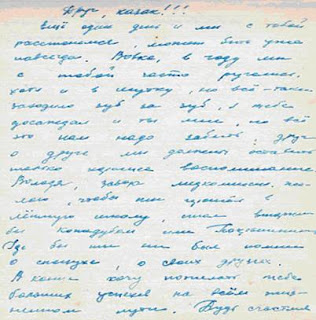 Друг, казак!!!
Ещё один день и мы с тобой
расстанемся, может быть уже
навсегда. Вовка, в году мы
с тобой часто ругались
хотя и в шутку, но всё-таки
заходило зуб за зуб, я тебе
досаждал и ты мне, но всё
это нам надо забыть, друг
о друге мы должны оставить
только лучшие воспоминания.
Володя, завтра
чтобы ты
лётную школу, стал
бы Кожедубом или Покрышкиным
Где бы ты ни был помни
о спецухе, о своих друзьях.
В конце хочу пожелать тебе
больших успехов на твоём жиз-
ненном пути. Будь счастлив